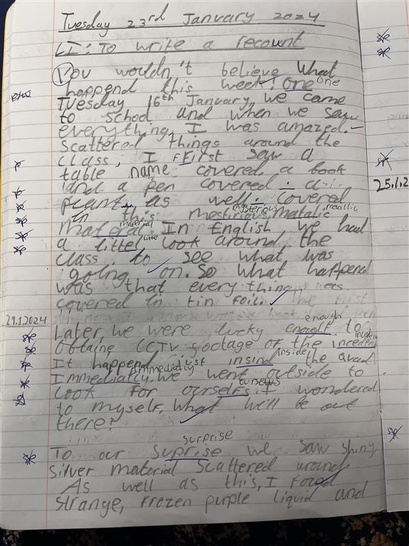 Tuesday 23rd January 2024
LI: To write a recount
You wouldn't believe what
happend this week! one one
Tuesday 16th January, we came
to school and when we saw
everything, I was amazed.
Scattered things around the
class, I First saw a
table name covered, a book
and a pen covered; a
plant, as well covered
in this mysterious metallic
material. In English we had
a littel look around the
class, to see what was
going on. So what happend
was that everything was
covered in tin foil.
24.1.2024
Later, we were lucky enough to
Obtaine CCTV footage of the
It happend just insind inside the
Immediatly, immediately we went outside to
look for ourselfs. I wondered
to myself, what will be out
there?
surprise
To our suprise we saw shiny
Silver material Scattered around.
As well as this, I found
Strange, frozen purple liquid and
25.1.2